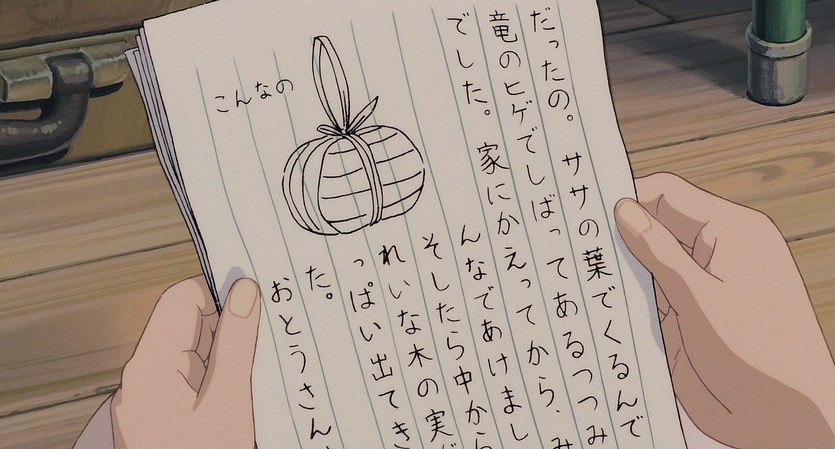 だったの。ササの葉でくるんで
竜のヒゲでしばってあるつつみ
でした。家にかえってから、み
んなであけまし
そしたら中から
れいな木の実が
っぱい出てき
た。
おとうさん、
こんなの